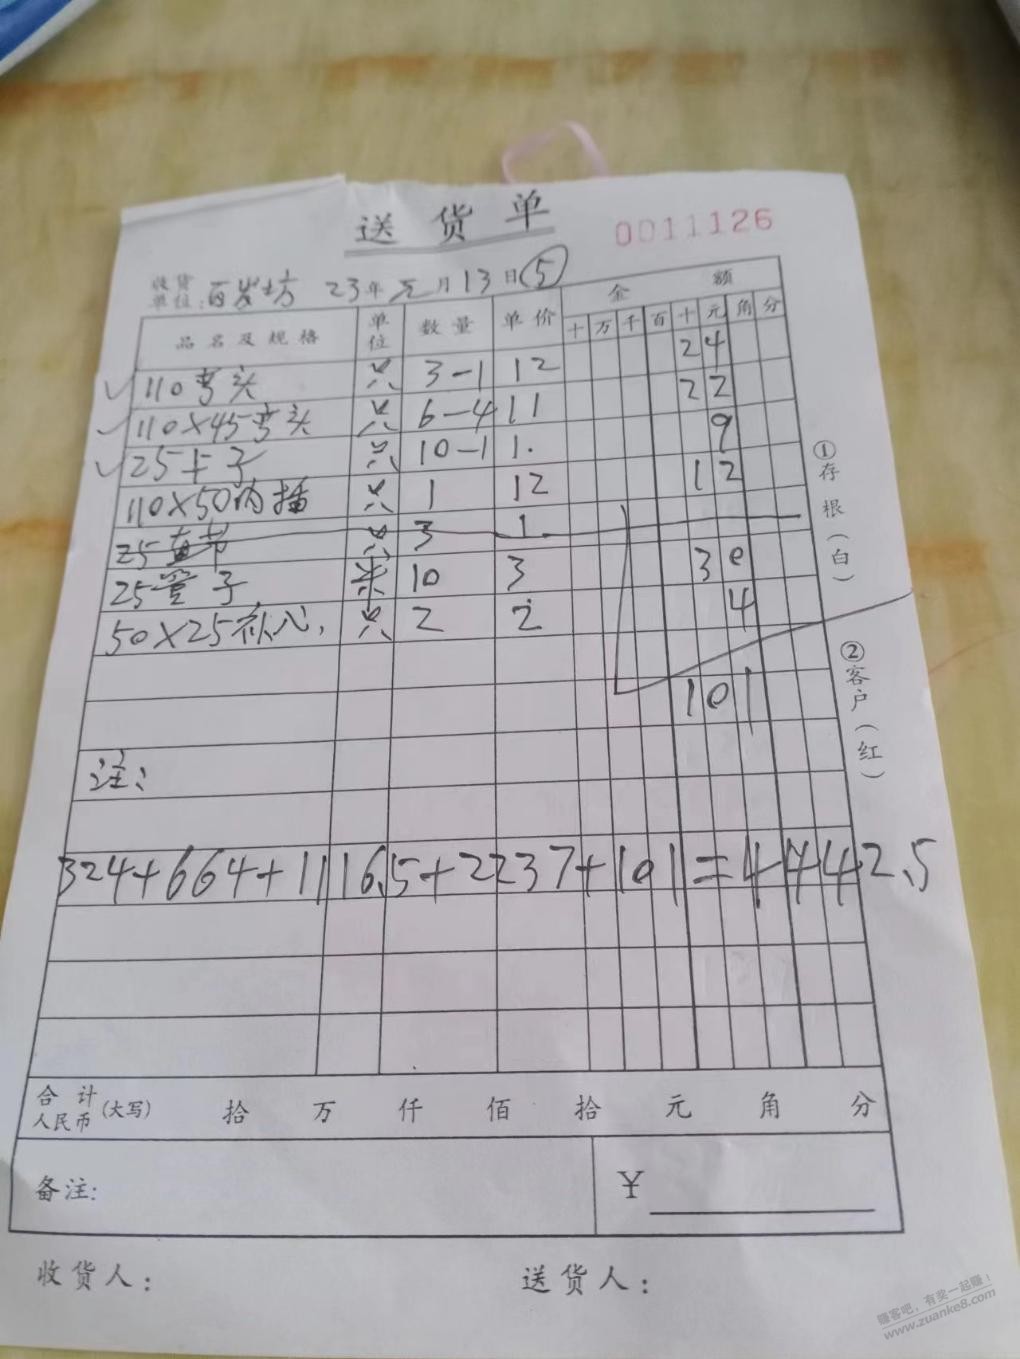 送货单
0011126
收货单位：百岁坊 23年元月13日⑤
品名及规格 单位 数量 单价 金额
十 万 千 百 十 元 角 分
110弯头 只 3-1 12 24
110X45弯头 只 6-4 11 22
25卡子 只 10-1 1. 9
110X50内插 只 1 12 12
25直节 只 3 1
25管子 米 10 3 30
50X25补心, 只 2 2 4
101
注:
324+664+1116.5+2237+101=4442.5
合计人民币(大写) 拾 万 仟 佰 拾 元 角 分
备注:
¥
收货人: 送货人:
①存根(白)
②客户(红)
赚客吧，有奖一起赚!
www.zuanke8.com